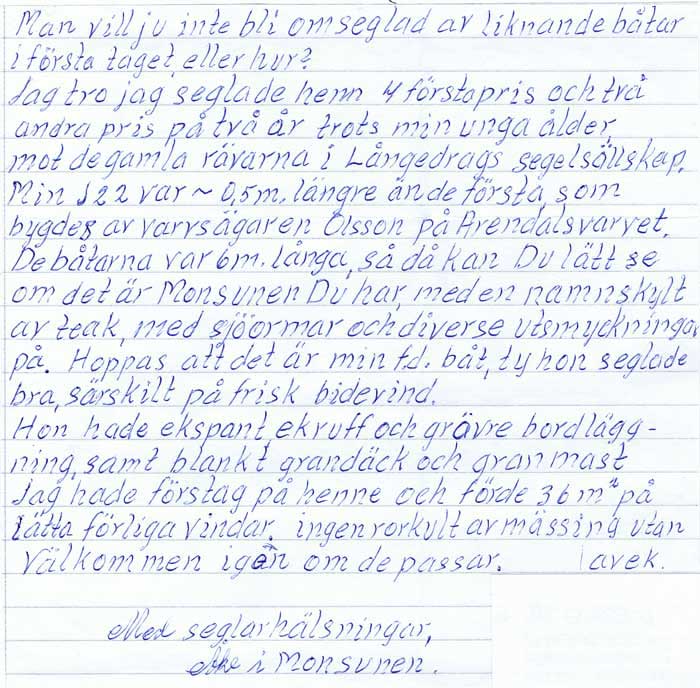 Man vill ju inte bli omseglad av liknande båtar
i första taget, eller hur?
Jag tro jag seglade henn 4 förstapris och två
andra pris på två år trots min unga ålder,
mot de gamla rävarna i Långedrags segelsällskap.
Min J22 var ~ 0,5m. längre än de första, som
bygdes av varvsägaren Olsson på Arendalsvarvet.
De båtarna var 6m. långa, så då kan Du lätt se
om det är Monsunen Du har, med en namnskylt
av teak, med sjöormar och diverse utsmyckningar
på. Hoppas att det är min f.d. båt, ty hon seglade
bra, särskilt på frisk bidevind.
Hon hade ekspant, ekruff och grävre bordlägg-
ning, samt blankt grandäck och granmast
Jag hade förstag på henne och förde 36 m² på
lätta förliga vindar. ingen rorkult av mässing utan
Välkommen igen om de passar. avek.
Med seglarhälsningar,
Åke i Monsunen.